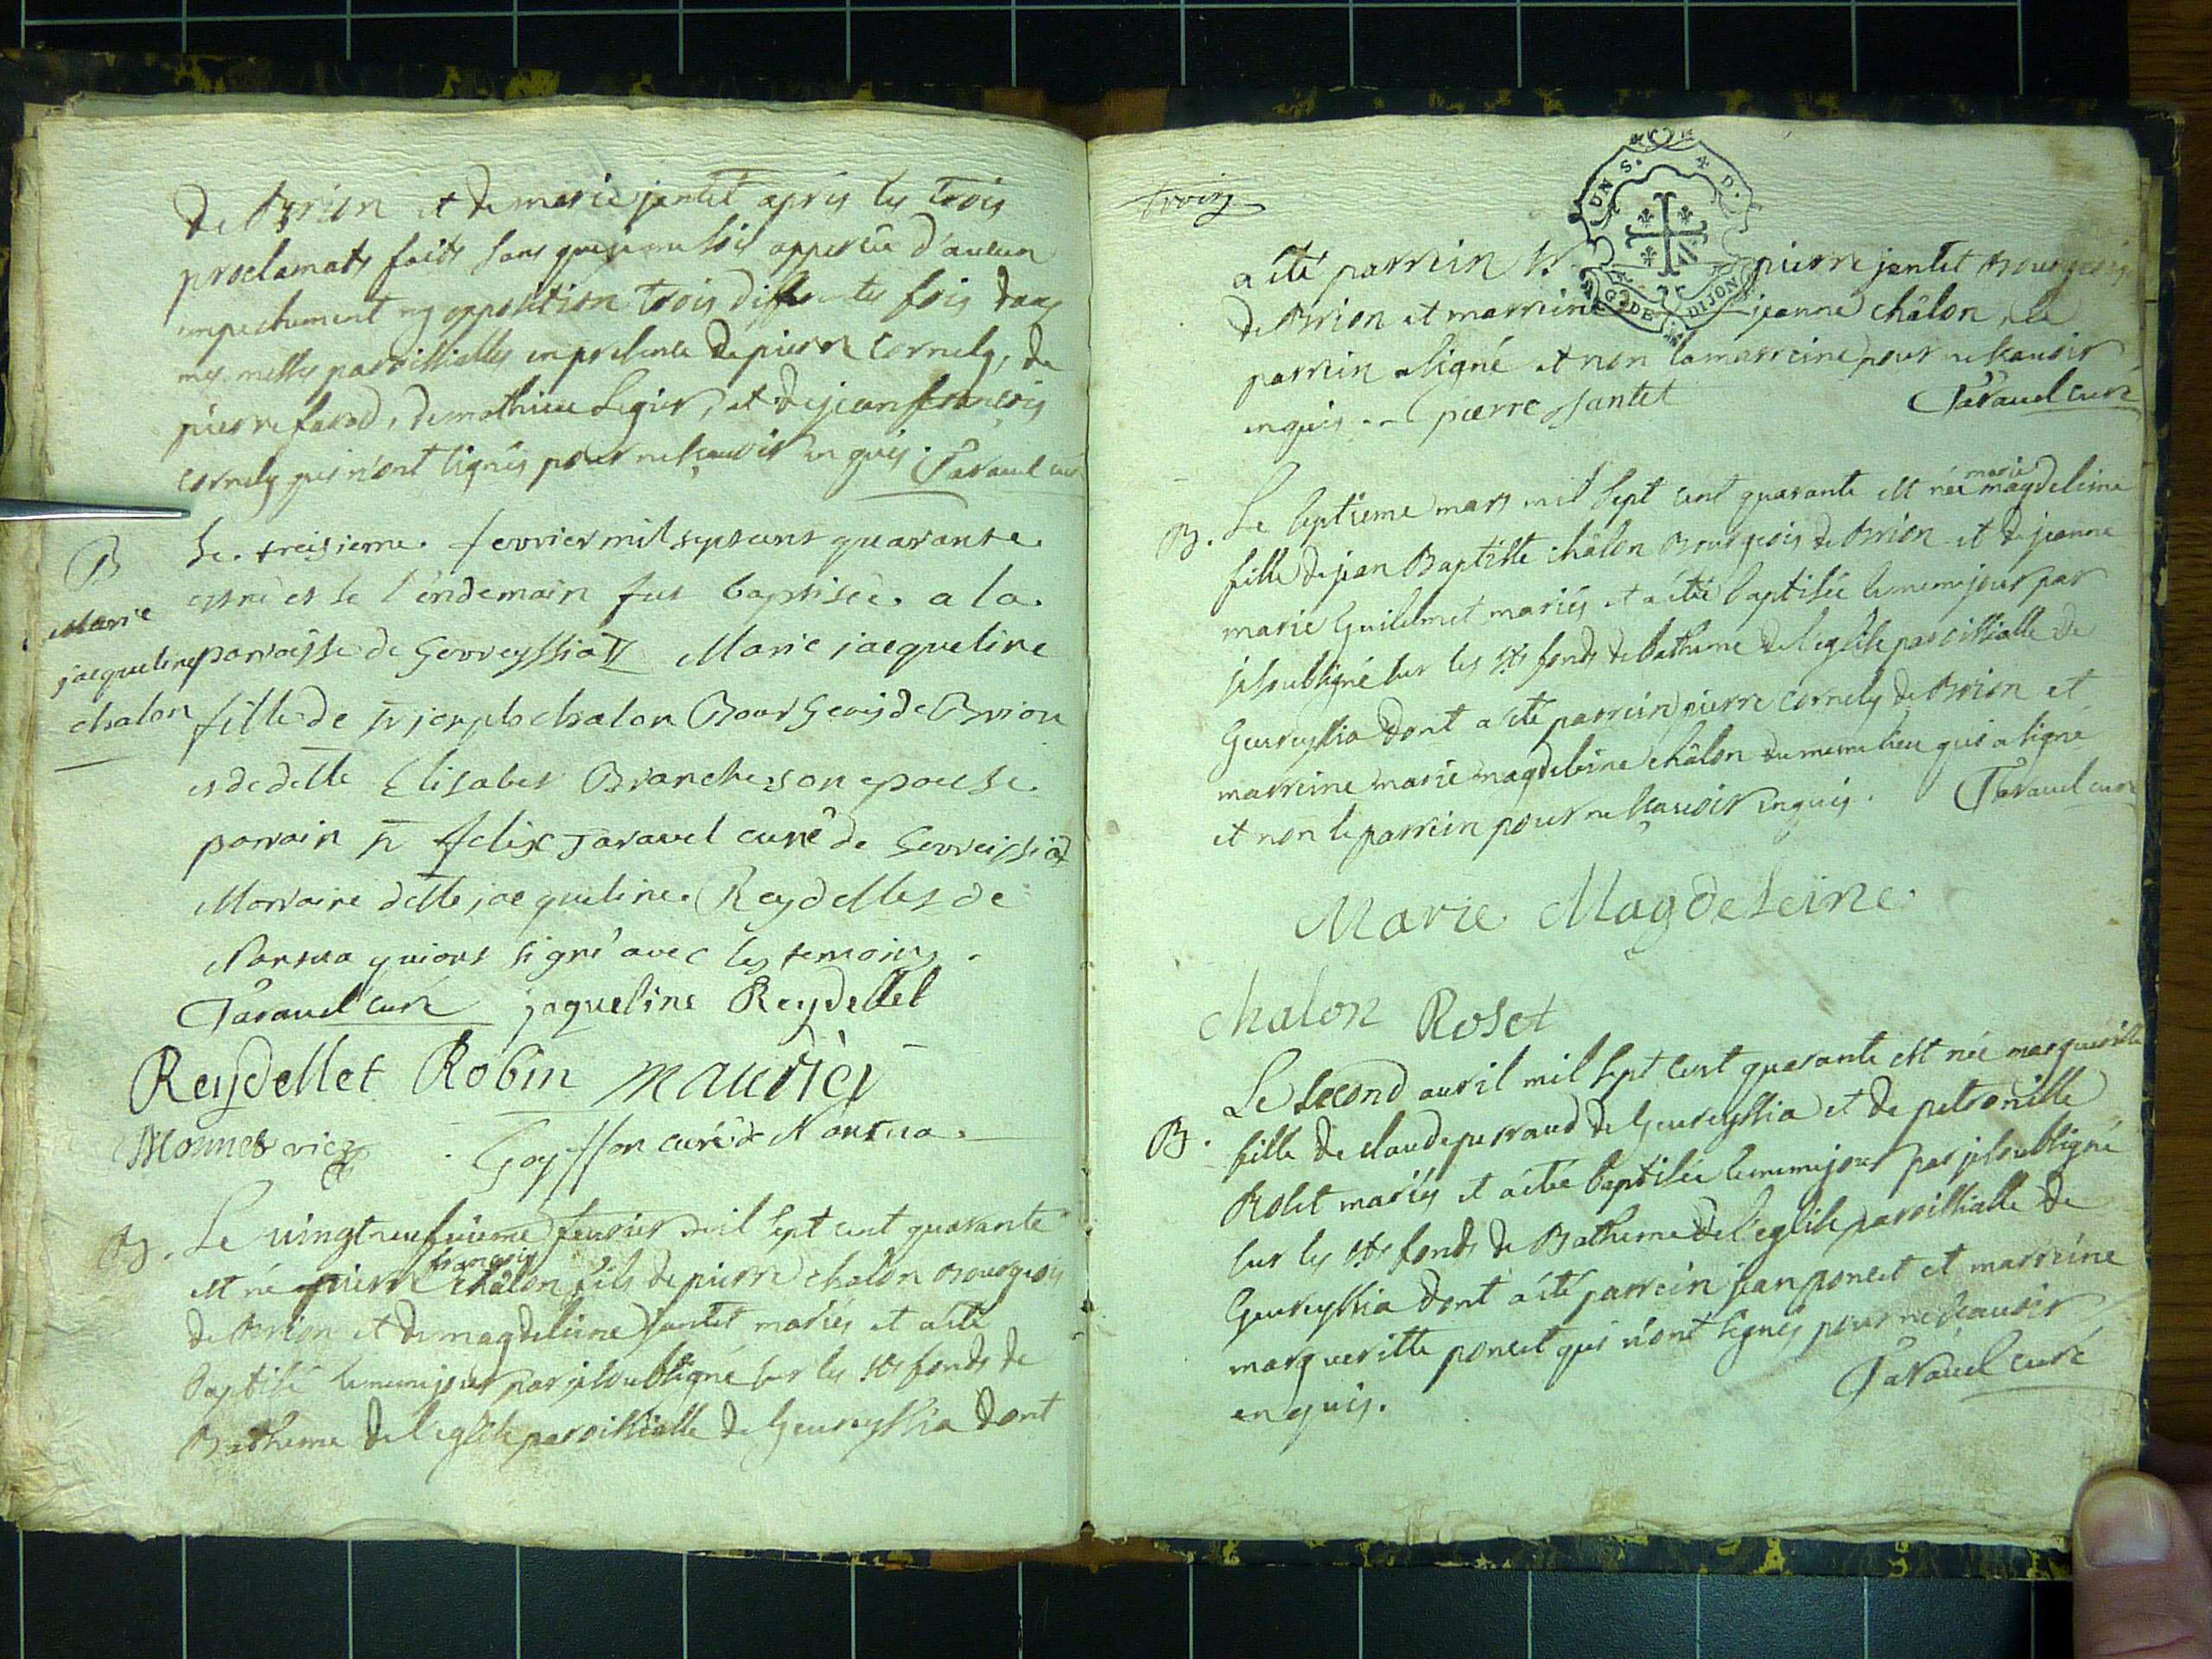 de Brion et de marie jantet après les trois
proclamats faits sans que je me sois apperçu d'aucun
empechement ny opposition trois differentes fois dans
mes messes paroissialles en presence de pierre Cornely, de
pierre farod, de mathieu Legir, et de jean françois
cornely qui n'ont signés pour ne sçauoir en quis. Tarauel curé
B
Marie
jacqueline
chalon
Le. treisieme. fevrier mil sept cens quarante.
est né et le l'endemain fut baptisée. a la.
parroisse de Gevreyssiat Marie jacqueline
fille de sr joseph chalon Bourgeois de Brion
et de delle Elisabet Branche son epouse.
parrain sr felix Taravel curé de Gevreissiat
Marraine delle jacqueline. Reydellet de
Nantua qui ont signé avec les temoins.
Tarauel curé jaqueline Reydellet
Reydellet Robin Mauriey
Monnet vic
Goyffon curé de Nantua.
B. Le uingt neufuieme feurier mil sept cent quarante
est né pierre françois châlon fils de pierre chalon Bourgeois
de Brion et de magdeleine jantet mariés et a été
baptisé le meme jour par je soubsigné sur les sts fonds de
Batheme de l'eglise paroissialle de Geureyssia dont
trois
UN S. D.
G. DE DIJON
a été parrein sr pierre jantet Bourgeois
de Brion et marreine jeanne châlon, le
parrein a signé et non la marreine pour ne sçauoir
en quis .. pierre Jantet Tarauel curé
B. Le septieme mars mil sept cent quarante est née marie magdeleine
fille de jean Baptiste châlon Bourgeois de Brion et de jeanne
marie Guilermet mariés et a été baptisée le meme jour par
je soubsigné sur les sts fonds de batheme de l'eglise paroissialle de
Geureyssia dont a été parrein pierre cornely de Brion et
marreine marie magdeleine châlon du meme lieu qui a signé
et non le parrein pour ne sçauoir en quis. Tarauel curé
Marie Magdeleine.
chalon Roset
B. Le second auril mil sept cent quarante est née margueritte
fille de claude perraud de Geureyssia et de petronille
Rolet mariés et a été baptisée le meme jour par je soubsigné
sur les sts fonds de Batheme de l'eglise paroissialle de
Geureyssia dont a été parrein jean poncet et marreine
margueritte poncet qui n'ont signés pour ne sçauoir
en quis. Tarauel curé